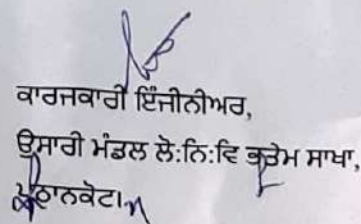 ਕਾਰਜਕਾਰੀ ਇੰਜੀਨੀਅਰ,
ਉਸਾਰੀ ਮੰਡਲ ਲੋ:ਨਿ:ਵਿ ਭ:ਤੇਮ ਸਾਖਾ,
ਪਠਾਨਕੋਟ।